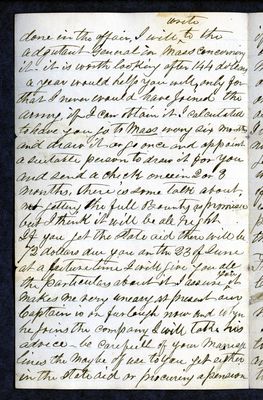 write
done in the affair I will, to the
adjutant General in Mass concerning
it - it is worth looking after 144 dollars
a year would help you will, only for
that I never would have Joined the
army if I can obtain it I calculated
to have you go to Mass every six months
and draw it or go once and appoint
a suitable person to draw it for you
and send a check once in 2 or 3
months, there is some talk about
not getting the full Bounty as promised
but I think it will be all right
If you get the State aid there will be
72 dollars due you on the 23 of June
at a future time I will give you all
the particulars about it I assure you
makes me very uneasy at present our
Captain is on furlough now but when
he joins the company I will take his
advice - be carefull of your Marriage
lines the may be of use to you yet either
in the State aid or procuring a pension